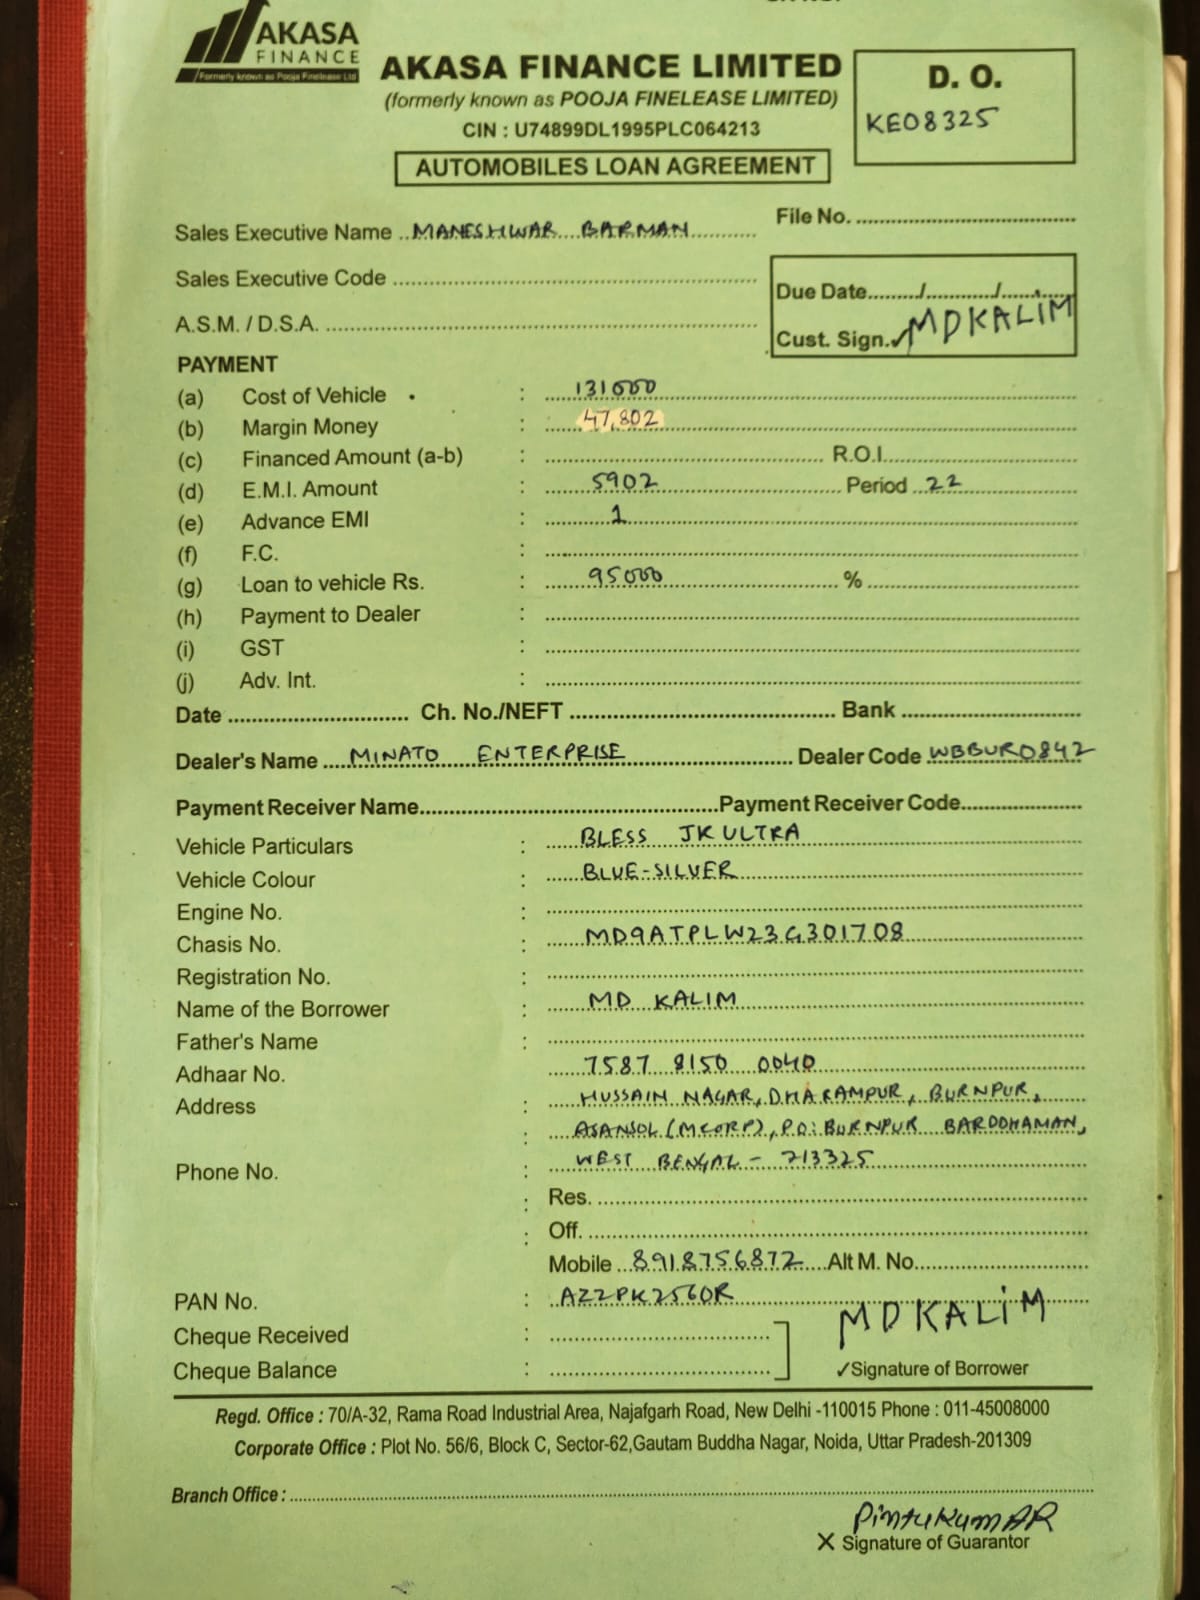 AKASA
FINANCE
Formerly known as Pooja Finelease Ltd
AKASA FINANCE LIMITED
(formerly known as POOJA FINELEASE LIMITED)
CIN : U74899DL1995PLC064213
AUTOMOBILES LOAN AGREEMENT
D. O.
KE08325
File No. ..........
Sales Executive Name .. MANESHWAR BARMAN
Sales Executive Code ..........
A.S.M. / D.S.A. ..........
Due Date........./............/............
Cust. Sign. ✓ MDKALIM
PAYMENT
(a) Cost of Vehicle : 131000
(b) Margin Money : 47,802
(c) Financed Amount (a-b) : .......... R.O.I...........
(d) E.M.I. Amount : 5902 Period 22
(e) Advance EMI : 1
(f) F.C. :
(g) Loan to vehicle Rs. : 95000 %
(h) Payment to Dealer :
(i) GST :
(j) Adv. Int. :
Date .......... Ch. No./NEFT .......... Bank ..........
Dealer's Name MINATO ENTERPRISE Dealer Code WBBUR0842
Payment Receiver Name..........Payment Receiver Code..........
Vehicle Particulars : BLESS JK ULTRA
Vehicle Colour : BLUE-SILVER
Engine No. :
Chasis No. : MD9ATPLW23G301708
Registration No. :
Name of the Borrower : MD KALIM
Father's Name :
Adhaar No. 7587 8150 0040
Address : HUSSAIN NAGAR, DHARAMPUR, BURNPUR,
: ASANSOL (MCORP), P.O: BURNPUR BARDDHAMAN,
Phone No. : WEST BENGAL - 713325
: Res. ..........
: Off. ..........
Mobile 8918756872 Alt M. No..........
PAN No. : AZZPK2560R
Cheque Received :
Cheque Balance :
MDKALIM
✓Signature of Borrower
Regd. Office : 70/A-32, Rama Road Industrial Area, Najafgarh Road, New Delhi -110015 Phone : 011-45008000
Corporate Office : Plot No. 56/6, Block C, Sector-62,Gautam Buddha Nagar, Noida, Uttar Pradesh-201309
Branch Office : ..........
PintuKumAR
X Signature of Guarantor